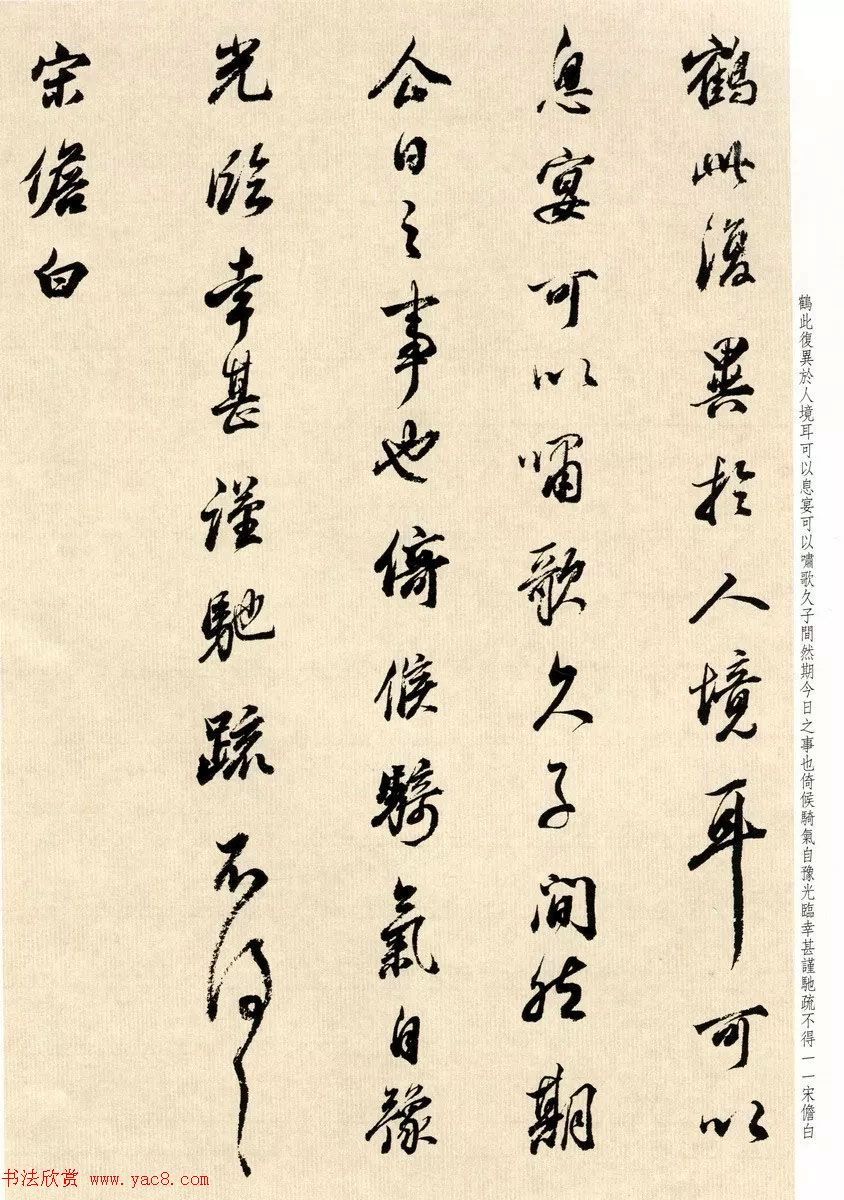 鶴此復異於人境耳可以
息宴可以嘯歌久子間然期
今日之事也倚候騎氣自豫
光臨幸甚謹馳疏不得一一
宋儋白
鶴此復異於人境耳可以息宴可以嘯歌久子間然期今日之事也倚候騎氣自豫光臨幸甚謹馳疏不得一一宋儋白
书法欣赏 www.yac8.com